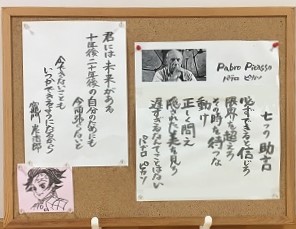 君には未来がある
十年後二十年後の自分のためにも
今頑張らないと
今できないことも
いつかできるようになるから
竈門 炭治郎
Pablo Picasso
パブロ ピカソ
七つの助言
必ずできると信じろ
限界を超えろ
その時を待つな
動け
正しく問え
隠れた美を見ろ
遅すぎるなんてことはない
パブロ ピカソ